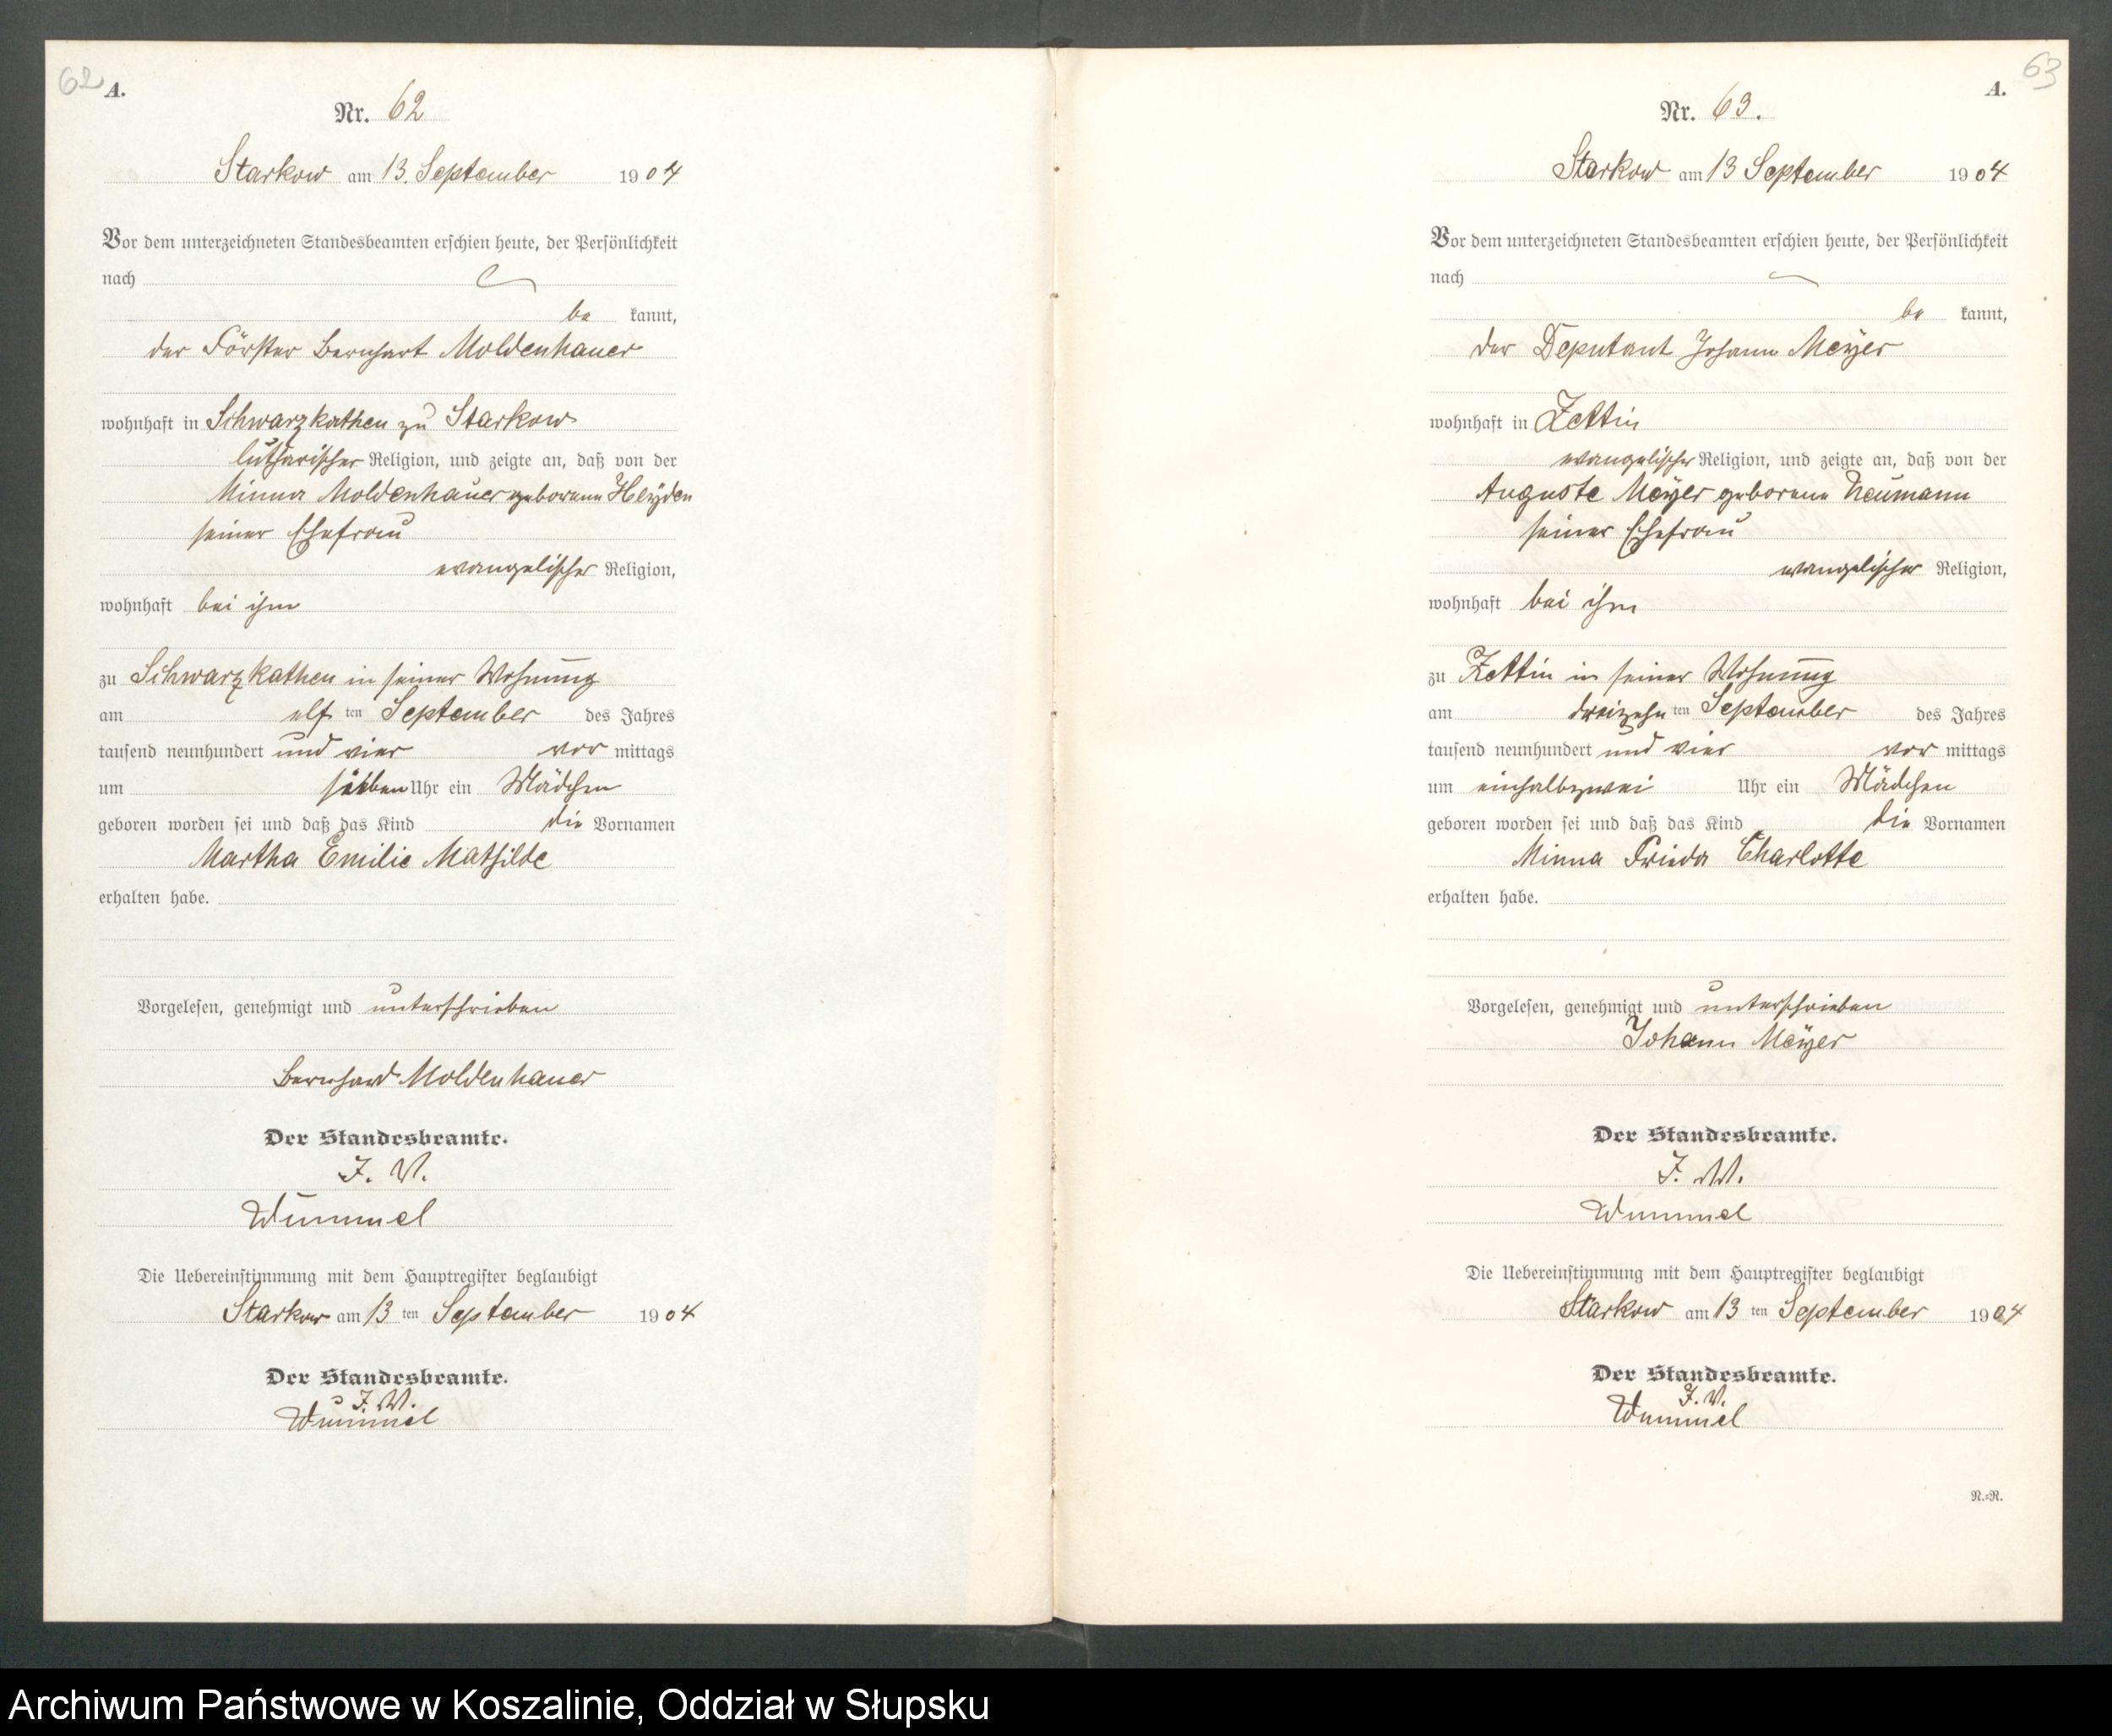 62
A.
Nr. 62
Starkow am 13. September 1904
Vor dem unterzeichneten Standesbeamten erschien heute, der Persönlichkeit
nach
be kannt,
der Förster Bernhart Moldenhauer
wohnhaft in Schwarzkathen zu Starkow
lutharischer Religion, und zeigte an, daß von der
Minna Moldenhauer geborene Heyden
seiner Ehefrau
evangelischer Religion,
wohnhaft bei ihm
zu Schwarzkathen in seiner Wohnung
am elf ten September des Jahres
tausend neunhundert und vier vor mittags
um sieben Uhr ein Mädchen
geboren worden sei und daß das Kind die Vornamen
Martha Emilie Mathilde
erhalten habe.
Vorgelesen, genehmigt und unterschrieben
Bernhard Moldenhauer
Der Standesbeamte.
I. V.
Wummel
Die Uebereinstimmung mit dem Hauptregister beglaubigt
Starkow am 13 ten September 1904
Der Standesbeamte.
I. V.
Wummel
63
A.
Nr. 63.
Starkow am 13 September 1904
Vor dem unterzeichneten Standesbeamten erschien heute, der Persönlichkeit
nach
be kannt,
der Deputant Johann Meyer
wohnhaft in Zettin
evangelischer Religion, und zeigte an, daß von der
Auguste Meyer geborene Neumann
seiner Ehefrau
evangelischer Religion,
wohnhaft bei ihm
zu Zettin in seiner Wohnung
am dreizehn ten September des Jahres
tausend neunhundert und vier vor mittags
um einhalbzwei Uhr ein Mädchen
geboren worden sei und daß das Kind die Vornamen
Minna Frieda Charlotte
erhalten habe.
Vorgelesen, genehmigt und unterschrieben
Johann Meyer
Der Standesbeamte.
I. V.
Wummel
Die Uebereinstimmung mit dem Hauptregister beglaubigt
Starkow am 13 ten September 1904
Der Standesbeamte.
I. V.
Wummel
R.=R.
Archiwum Państwowe w Koszalinie, Oddział w Słupsku